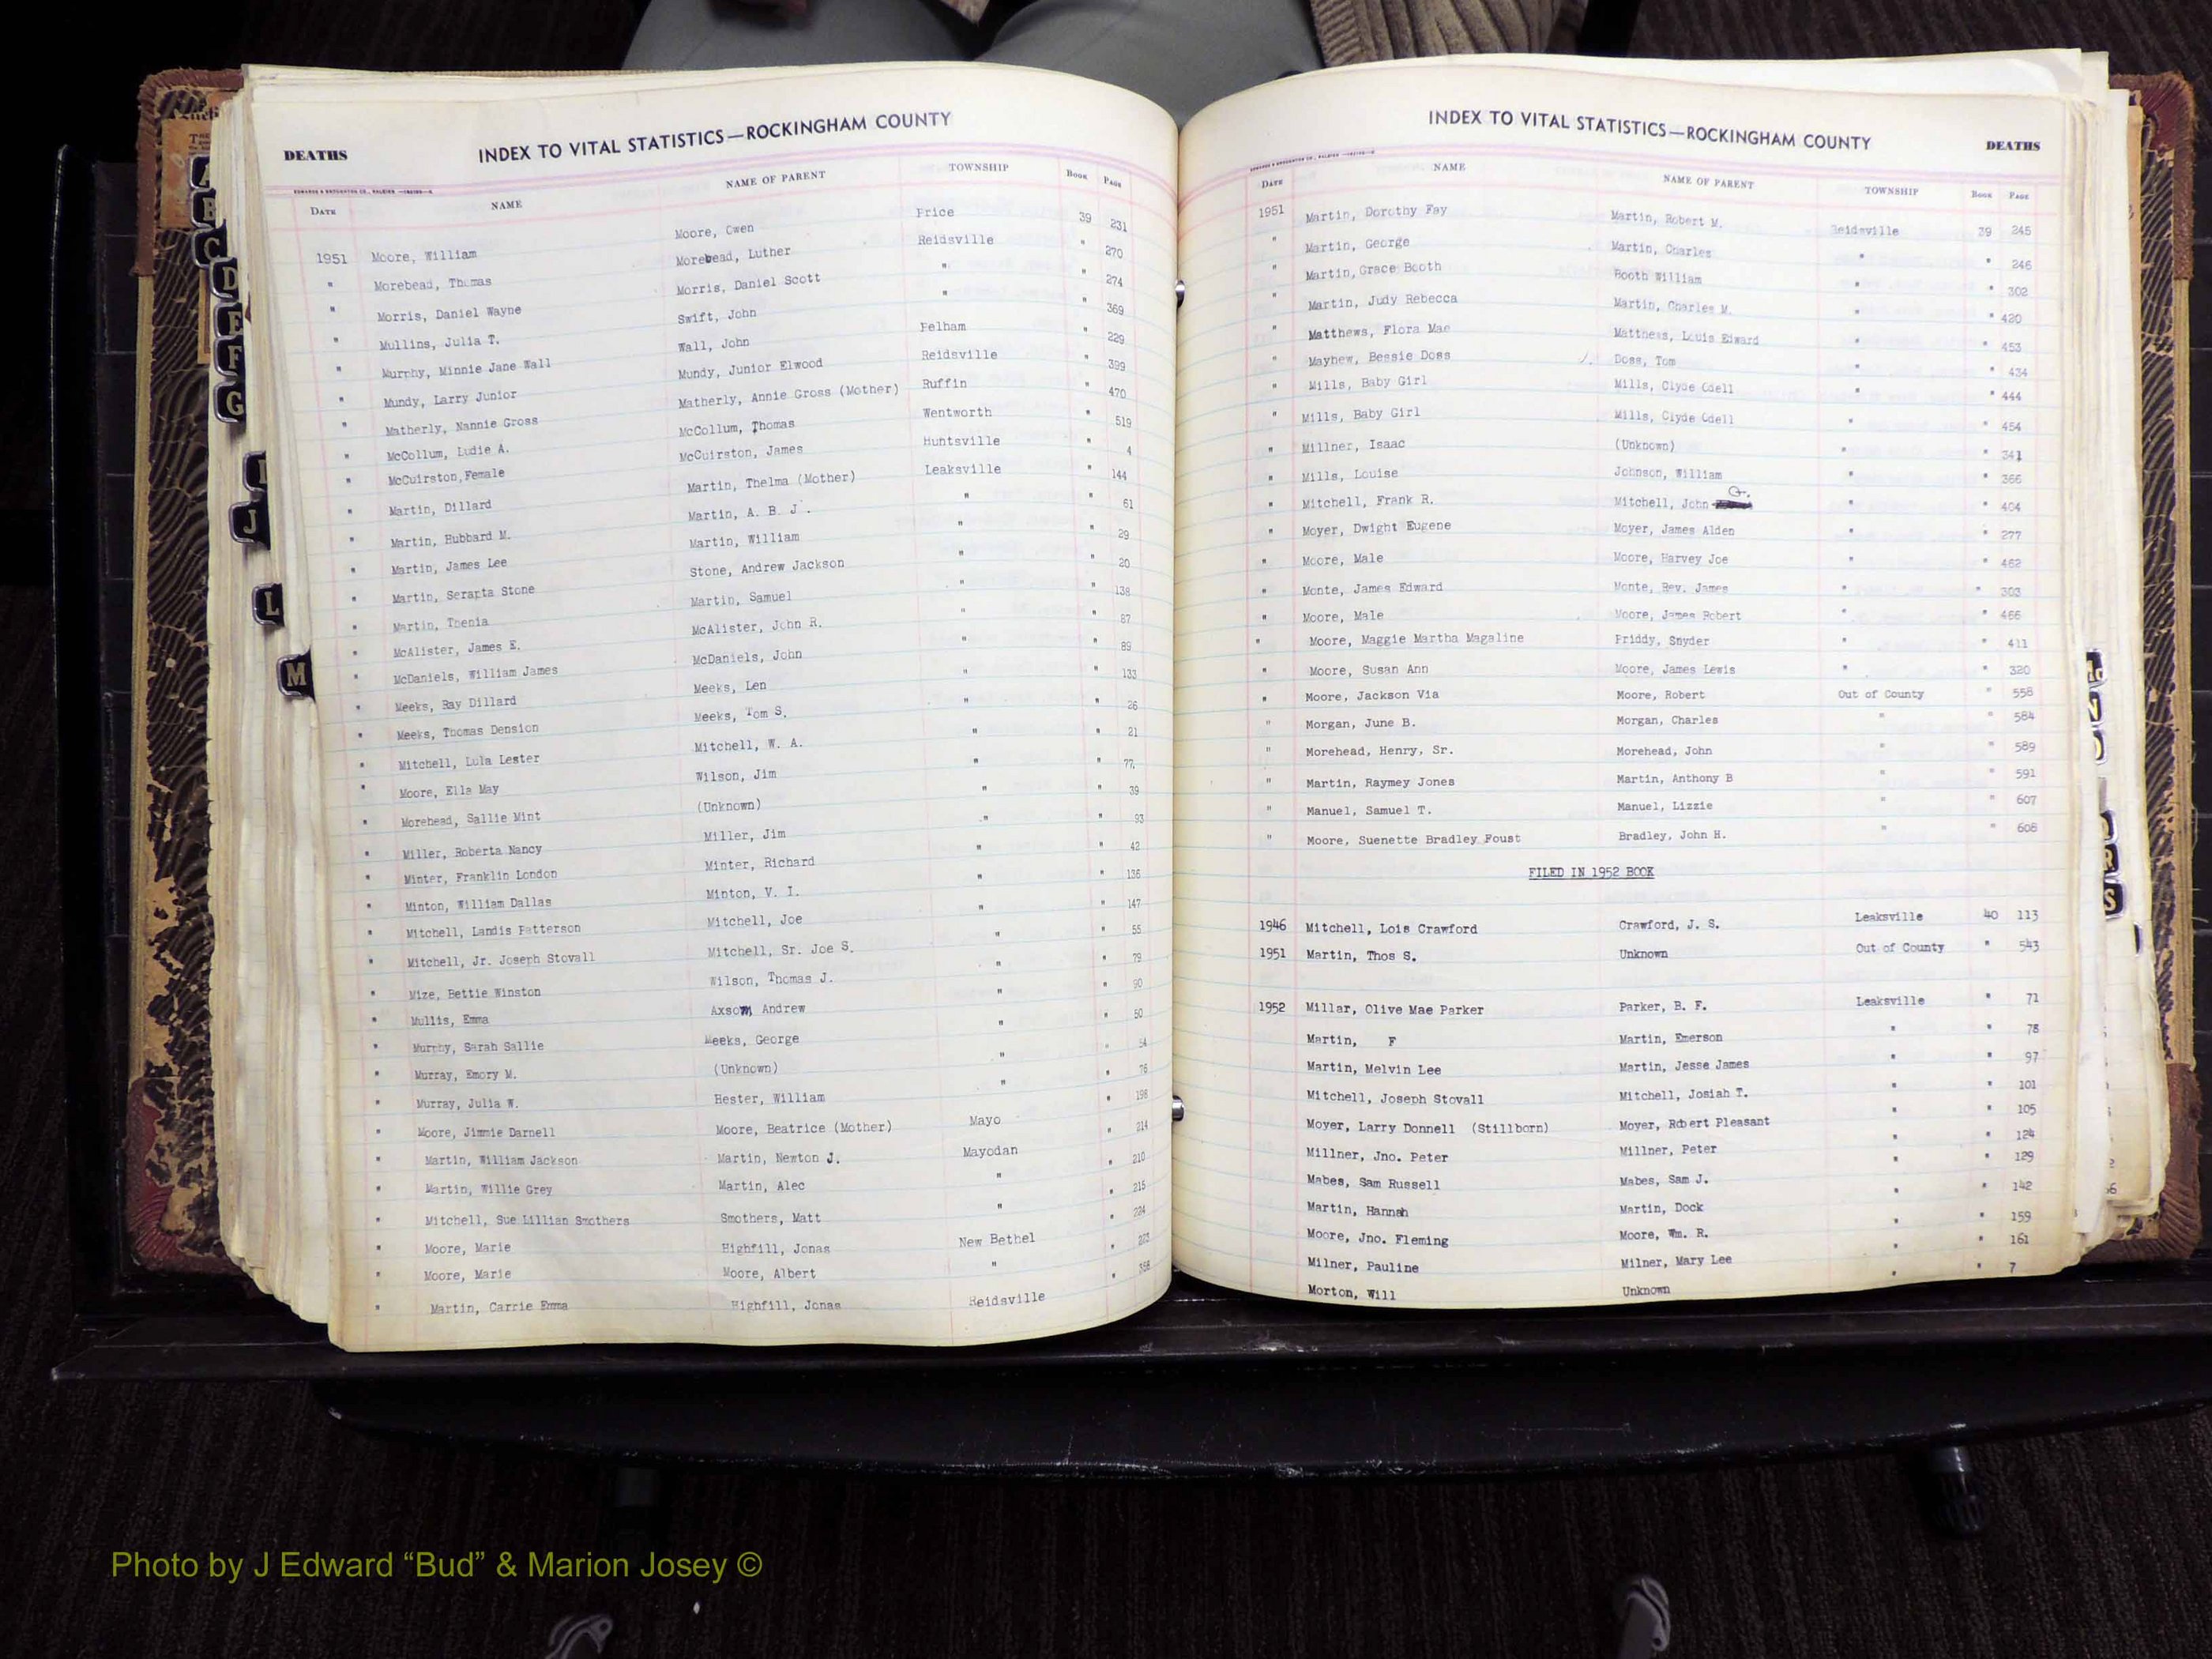 DEATHS INDEX TO VITAL STATISTICS—ROCKINGHAM COUNTY
DATE NAME NAME OF PARENT TOWNSHIP BOOK PAGE
1951 Moore, William Moore, Owen Price 39 231
" Morehead, Thomas Morehead, Luther Reidsville " 270
" Morris, Daniel Wayne Morris, Daniel Scott " " 274
" Mullins, Julia T. Swift, John " " 369
" Murphy, Minnie Jane Wall Wall, John Pelham " 229
" Mundy, Larry Junior Mundy, Junior Elwood Reidsville " 399
" Matherly, Nannie Gross Matherly, Annie Gross (Mother) Ruffin " 470
" McCollum, Ludie A. McCollum, Thomas Wentworth " 519
" McCuirston,Female McCuirston, James Huntsville " 4
" Martin, Dillard Martin, Thelma (Mother) Leaksville " 144
" Martin, Hubbard M. Martin, A. B. J. " " 61
" Martin, James Lee Martin, William " " 29
" Martin, Serapta Stone Stone, Andrew Jackson " " 20
" Martin, Thenia Martin, Samuel " " 138
" McAlister, James E. McAlister, John R. " " 87
" McDaniels, William James McDaniels, John " " 89
" Meeks, Ray Dillard Meeks, Len " " 133
" Meeks, Thomas Dension Meeks, Tom S. " " 26
" Mitchell, Lula Lester Mitchell, W. A. " " 21
" Moore, Ella May Wilson, Jim " " 77
" Morehead, Sallie Mint (Unknown) " " 39
" Miller, Roberta Nancy Miller, Jim " " 93
" Minter, Franklin London Minter, Richard " " 42
" Minton, William Dallas Minton, V. I. " " 136
" Mitchell, Landis Patterson Mitchell, Joe " " 147
" Mitchell, Jr. Joseph Stovall Mitchell, Sr. Joe S. " " 55
" Mize, Bettie Winston Wilson, Thomas J. " " 79
" Mullis, Emma Axsom Andrew " " 90
" Murphy, Sarah Sallie Meeks, George " " 50
" Murray, Emory M. (Unknown) " " 54
" Murray, Julia W. Hester, William " " 76
" Moore, Jimmie Darnell Moore, Beatrice (Mother) Mayo " 198
" Martin, William Jackson Martin, Newton J. Mayodan " 214
" Martin, Willie Grey Martin, Alec " " 210
" Mitchell, Sue Lillian Smothers Smothers, Matt " " 215
" Moore, Marie Highfill, Jonas New Bethel " 224
" Moore, Marie Moore, Albert " " 223
" Martin, Carrie Emma Highfill, Jonas Reidsville " 358
INDEX TO VITAL STATISTICS—ROCKINGHAM COUNTY DEATHS
DATE NAME NAME OF PARENT TOWNSHIP BOOK PAGE
1951 Martin, Dorothy Fay Martin, Robert M. Reidsville 39 245
" Martin, George Martin, Charles " " 246
" Martin,Grace Booth Booth William " " 302
" Martin, Judy Rebecca Martin, Charles M. " " 420
" Matthews, Flora Mae Matthews, Louis Edward " " 453
" Mayhew, Bessie Doss Doss, Tom " " 434
" Mills, Baby Girl Mills, Clyde Odell " " 444
" Mills, Baby Girl Mills, Clyde Odell " " 454
" Millner, Isaac (Unknown) " " 341
" Mills, Louise Johnson, William " " 366
" Mitchell, Frank R. Mitchell, John G. " " 404
" Moyer, Dwight Eugene Moyer, James Alden " " 277
" Moore, Male Moore, Harvey Joe " " 462
" Monte, James Edward Monte, Rev. James " " 303
" Moore, Male Moore, James Robert " " 466
" Moore, Maggie Martha Magaline Priddy, Snyder " " 411
" Moore, Susan Ann Moore, James Lewis " " 320
" Moore, Jackson Via Moore, Robert Out of County " 558
" Morgan, June B. Morgan, Charles " " 584
" Morehead, Henry, Sr. Morehead, John " " 589
" Martin, Raymey Jones Martin, Anthony B " " 591
" Manuel, Samuel T. Manuel, Lizzie " " 607
" Moore, Suenette Bradley Foust Bradley, John H. " " 608
FILED IN 1952 BOOK
1946 Mitchell, Lois Crawford Crawford, J. S. Leaksville 40 113
1951 Martin, Thos S. Unknown Out of County " 543
1952 Millar, Olive Mae Parker Parker, B. F. Leaksville " 71
Martin, F Martin, Emerson " " 78
Martin, Melvin Lee Martin, Jesse James " " 97
Mitchell, Joseph Stovall Mitchell, Josiah T. " " 101
Moyer, Larry Donnell (Stillborn) Moyer, Robert Pleasant " " 105
Millner, Jno. Peter Millner, Peter " " 124
Mabes, Sam Russell Mabes, Sam J. " " 129
Martin, Hannah Martin, Dock " " 142
Moore, Jno. Fleming Moore, Wm. R. " " 159
Milner, Pauline Milner, Mary Lee " " 161
Morton, Will Unknown " " 7
A
B
C
D
E
F
G
I
J
L
M
R
S
Photo by J Edward “Bud” & Marion Josey ©